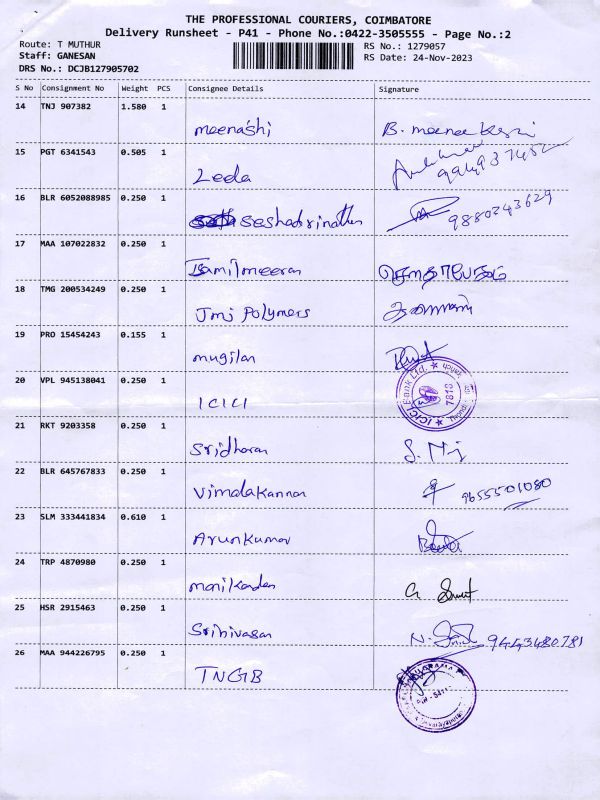 THE PROFESSIONAL COURIERS, COIMBATORE
Delivery Runsheet - P41 - Phone No.:0422-3505555 - Page No.:2
Route: T MUTHUR
RS No.: 1279057
Staff: GANESAN
RS Date: 24-Nov-2023
DRS No.: DCJB127905702
S No Consignment No Weight PCS Consignee Details Signature
14 TNJ 907382 1.580 1
meenashi B. meenakshi
15 PGT 6341543 0.505 1
Leela
16 BLR 6052088985 0.250 1
seshadrinathan 9880243629
17 MAA 107022832 0.250 1
Tamilmeeran
18 TMG 200534249 0.250 1
Jmj Polymers
19 PRO 15454243 0.155 1
mugilan
20 VPL 945138041 0.250 1
ICICI ICICI Bank Ltd. 7818
21 RKT 9203358 0.250 1
Sridharan
22 BLR 645767833 0.250 1
Vimalakannan 9655501080
23 SLM 333441834 0.610 1
Arunkumar
24 TRP 4870980 0.250 1
manikandan
25 HSR 2915463 0.250 1
Srinivasan 9443480781
26 MAA 944226795 0.250 1
TNGB